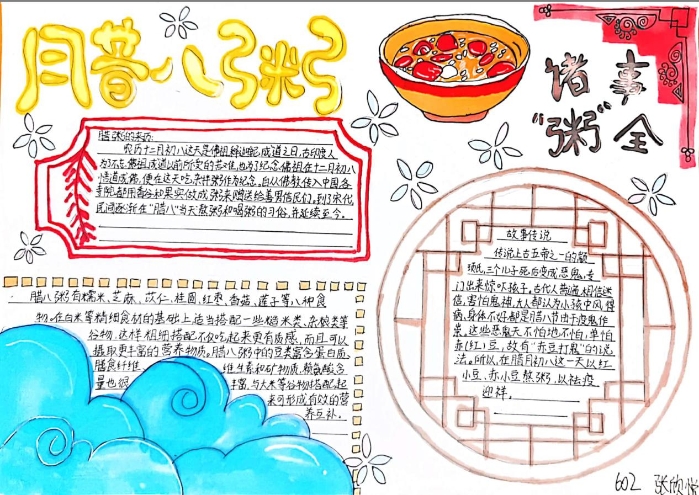 腊八粥
诸事
“粥”全
腊八粥的来历:
农历十二月初八这天是佛祖释迦牟尼成道之日,古印度人
为了不忘佛祖成道以前所受的苦难,也为了纪念佛祖在十二月初八
悟道成佛,便在这天吃杂拌粥作为纪念。自从佛教传入中国,各
寺院都用香谷和果实做成粥来赠送给善男信民们,到了宋代,
民间逐渐在“腊八”当天熬粥和喝粥的习俗,并延续至今。
腊八粥有糯米、芝麻、苡仁、桂圆、红枣、香菇、莲子等八种食
物,在白米等精细食材的基础上适当搭配一些糙米类、杂粮类等
谷物,这样粗细搭配不仅吃起来更有质感,而且可以
摄取更丰富的营养物质。腊八粥中的豆类富含蛋白质、
膳食纤维 维生素和矿物质,赖氨酸含
量也 丰富,与大米等谷物搭配起
来可形成有效的营
养互补。
故事传说
传说上古五帝之一的颛
顼氏,三个儿子死后变成恶鬼,专
门出来惊吓孩子。古代人普遍相信迷
信,害怕鬼神,大人都认为小孩中风得
病、身体不好都是腊八节由于疫鬼作
祟。这些恶鬼天不怕地不怕,单怕
赤(红)小豆,故有“赤豆打鬼”的说
法。所以,在腊月初八这一天以红
小豆、赤小豆熬粥,以祛疫
迎祥。
602 张欣